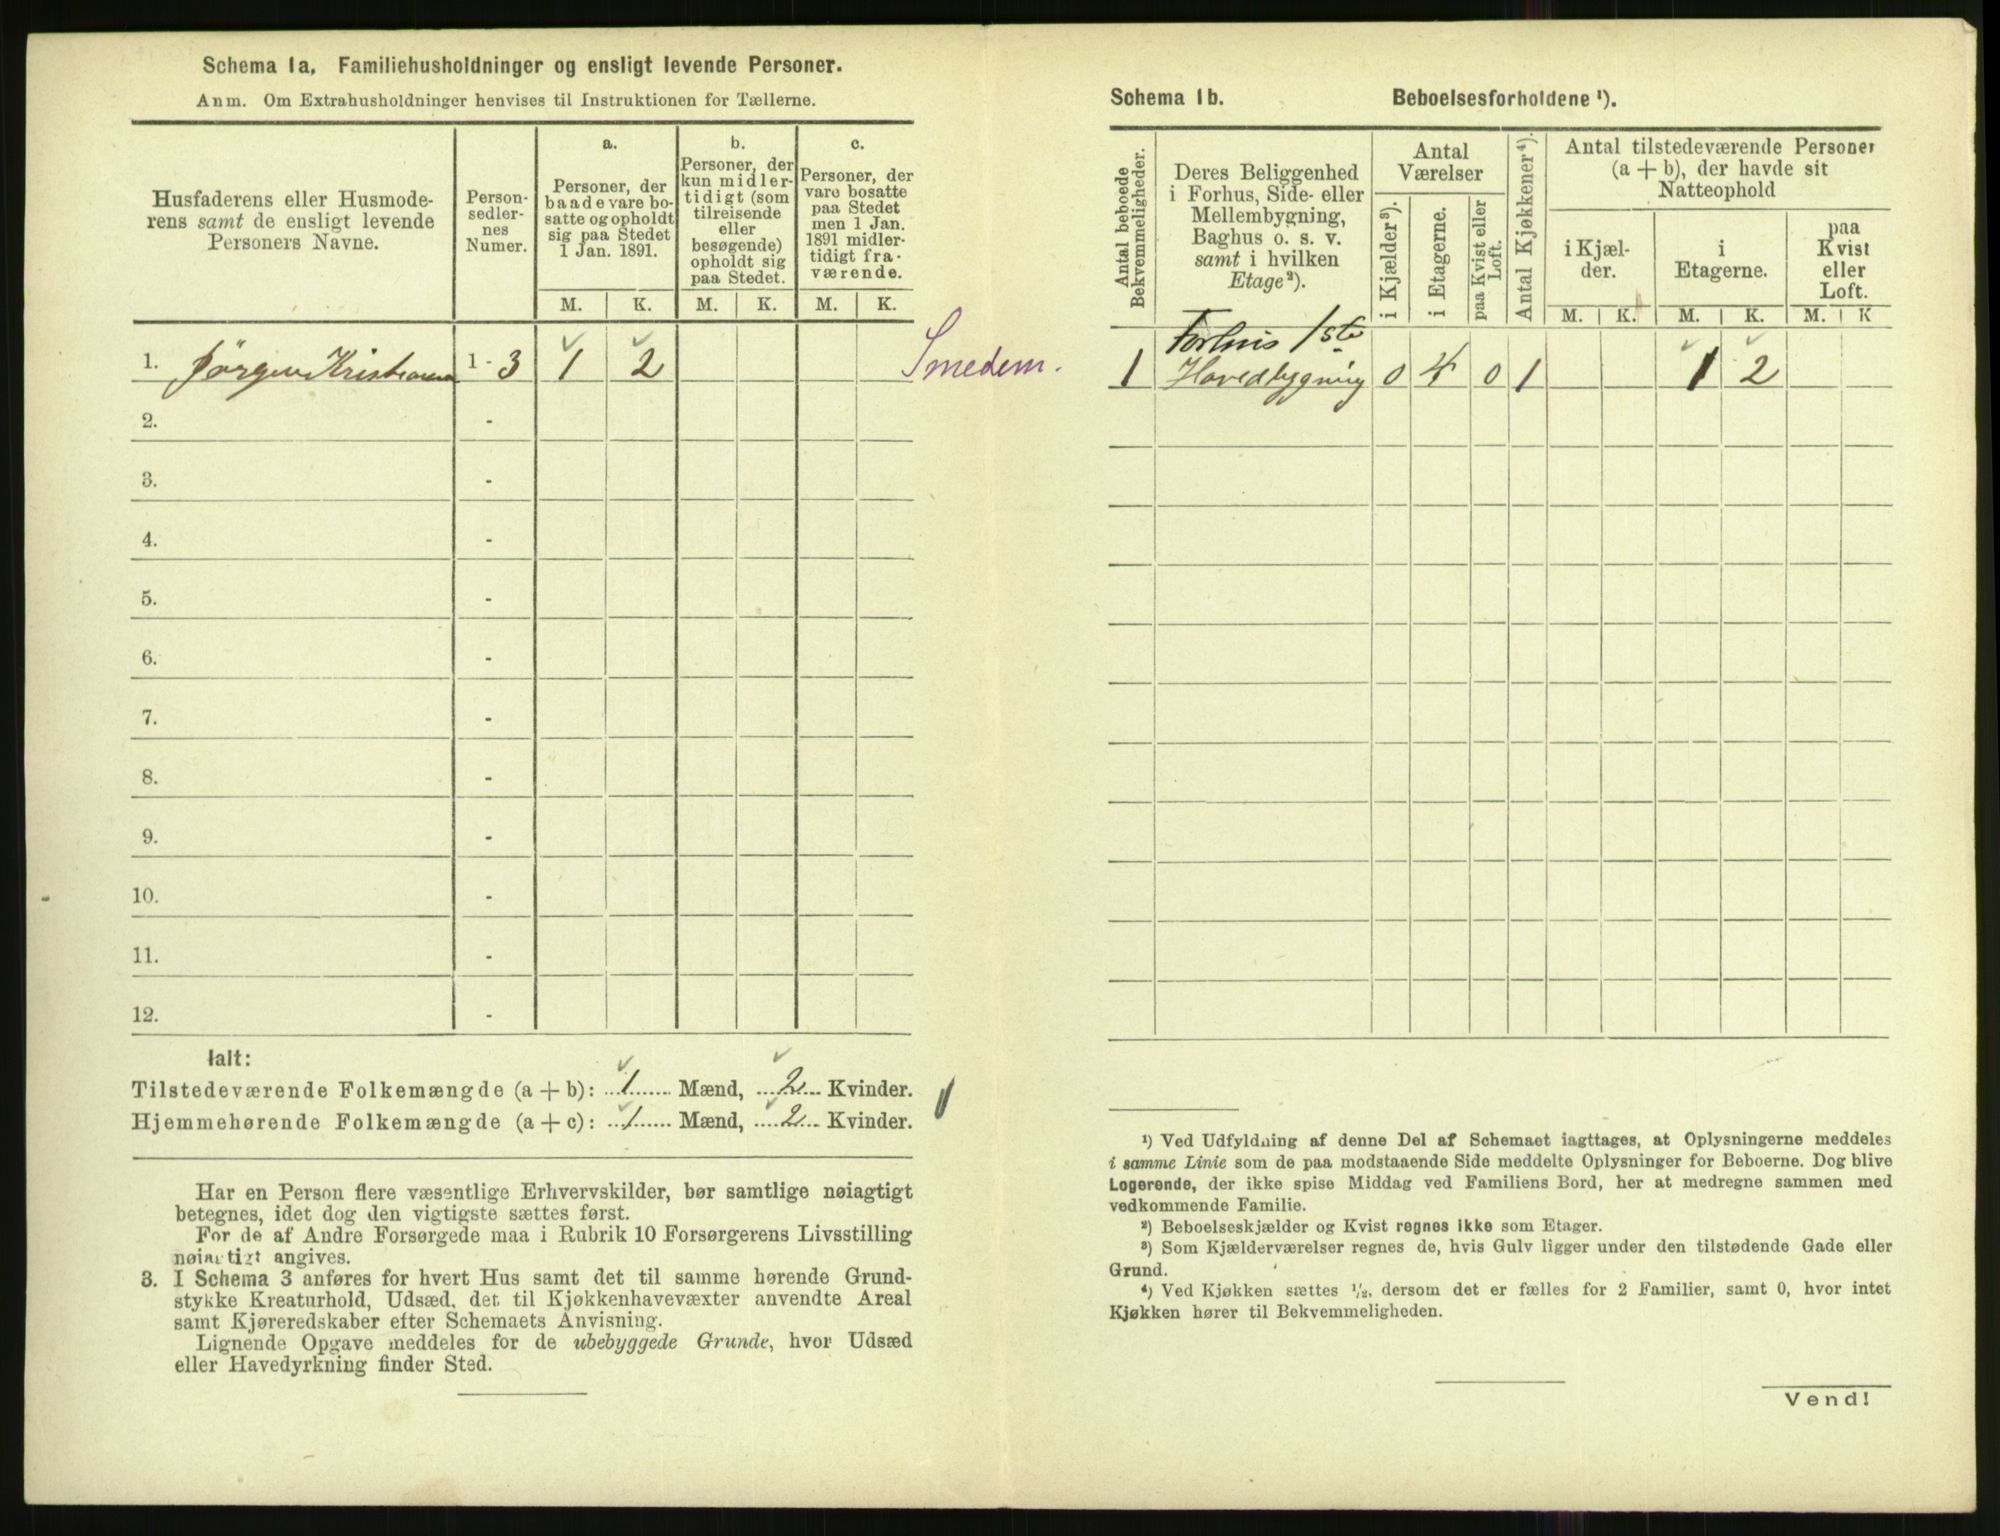 Schema 1a. Familiehusholdninger og ensligt levende Personer.
Anm. Om Extrahusholdninger henvises til Instruktionen for Tællerne.
Husfaderens eller Husmode-
rens samt de ensligt levende
Personers Navne.
Person-
sedler-
nes
Numer.
a.
Personer, der
baade vare bo-
satte og opholdt
sig paa Stedet
1 Jan. 1891.
b.
Personer, der
kun midler-
tidigt (som
tilreisende
eller
besøgende)
opholdt sig
paa Stedet.
c.
Personer, der
vare bosatte
paa Stedet
men 1 Jan.
1891 midler-
tidigt fra-
værende.
M. K. M. K. M. K.
1. Jørgen Kristiansen 1 - 3 1 2 Smedem.
2. -
3. -
4. -
5. -
6. -
7. -
8. -
9. -
10. -
11. -
12. -
Ialt:
Tilstedeværende Folkemængde (a + b): 1 Mænd, 2 Kvinder.
Hjemmehørende Folkemængde (a + c): 1 Mænd, 2 Kvinder.
Har en Person flere væsentlige Erhvervskilder, bør samtlige nøiagtigt
betegnes, idet dog den vigtigste sættes først.
For de af Andre Forsørgede maa i Rubrik 10 Forsørgerens Livsstilling
nøiagtigt angives.
3. I Schema 3 anføres for hvert Hus samt det til samme hørende Grund-
stykke Kreaturhold, Udsæd, det til Kjøkkenhavevæxter anvendte Areal
samt Kjøreredskaber efter Schemaets Anvisning.
Lignende Opgave meddeles for de ubebyggede Grunde, hvor Udsæd
eller Havedyrkning finder Sted.
Schema 1b. Beboelsesforholdene ¹).
Antal beboede
Bekvemmeligheder.
Deres Beliggenhed
i Forhus, Side- eller
Mellembygning,
Baghus o. s. v.
samt i hvilken
Etage²).
Antal
Værelser
i Kjælder³).
i Etagerne.
paa Kvist eller
Loft.
Antal Kjøkkener⁴).
Antal tilstedeværende Personer
(a + b), der havde sit
Natteophold
i Kjæl-
der.
i
Etagerne.
paa
Kvist
eller
Loft.
M. K. M. K. M. K
Forhus 1ste
1 Hovedbygning 0 4 0 1 1 2
¹) Ved Udfyldning af denne Del af Schemaet iagttages, at Oplysningerne meddeles
i samme Linie som de paa modstaaende Side meddelte Oplysninger for Beboerne. Dog blive
Logerende, der ikke spise Middag ved Familiens Bord, her at medregne sammen med
vedkommende Familie.
²) Beboelseskjælder og Kvist regnes ikke som Etager.
³) Som Kjælderværelser regnes de, hvis Gulv ligger under den tilstødende Gade eller
Grund.
⁴) Ved Kjøkken sættes ¹/₂, dersom det er fælles for 2 Familier, samt 0, hvor intet
Kjøkken hører til Bekvemmeligheden.
Vend!